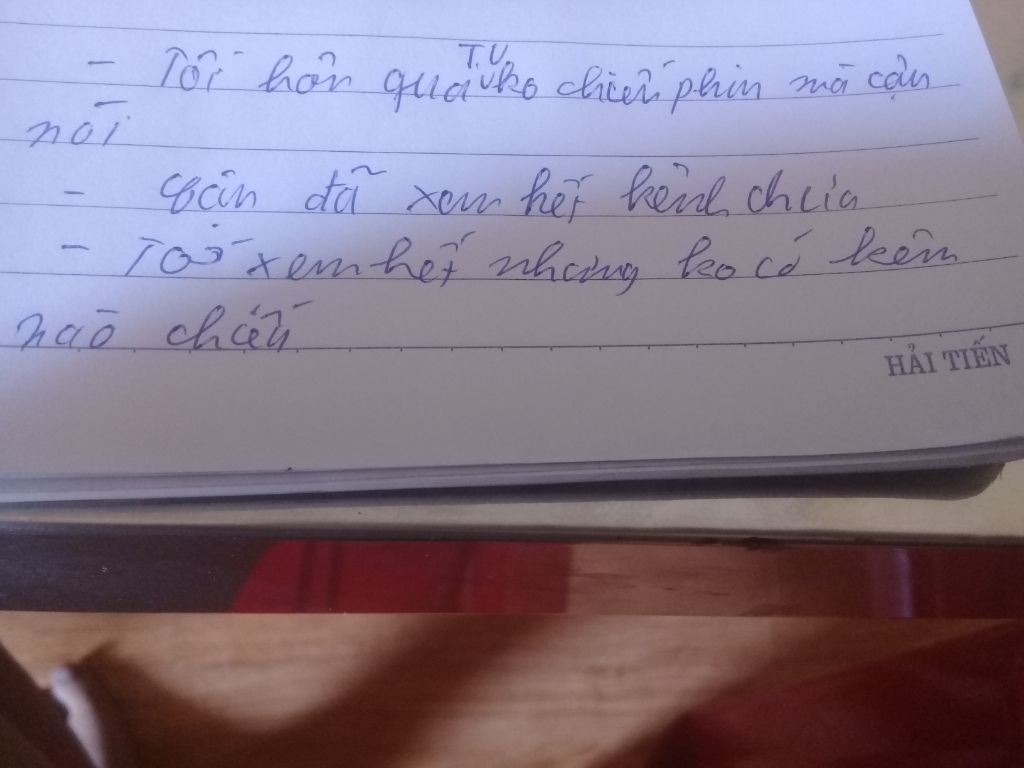 - Tối hôn quaT.V ko chiếu phin mà cận
nói
- cận đã xem hết kênh chưa
- Tớ xem hết nhưng ko có kên
nào chiếu
HẢI TIẾN